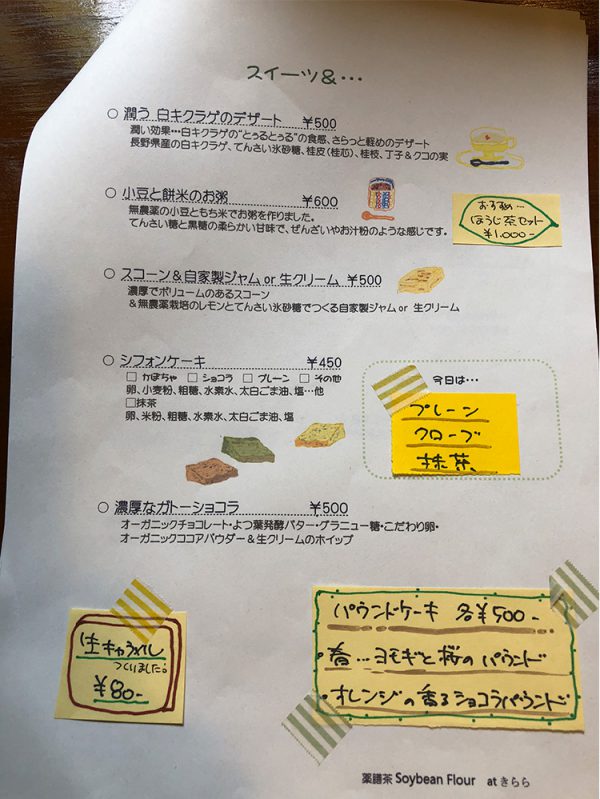 スイーツ＆…
○ 潤う 白キクラゲのデザート ￥500
潤い効果…白キクラゲの“とぅるとぅる”の食感、さらっと軽めのデザート
長野県産の白キクラゲ、てんさい氷砂糖、桂皮(桂芯)、桂枝、丁子＆クコの実
○ 小豆と餅米のお粥 ￥600
無農薬の小豆ともち米でお粥を作りました。
てんさい糖と黒糖の柔らかい甘味で、ぜんざいやお汁粉のような感じです。
おすすめ…
ほうじ茶セット
￥1,000-
○ スコーン＆自家製ジャム or 生クリーム ￥500
濃厚でボリュームのあるスコーン
＆無農薬栽培のレモンとてんさい氷砂糖でつくる自家製ジャム or 生クリーム
○ シフォンケーキ ￥450
□ かぼちゃ □ ショコラ □ プレーン □ その他
卵、小麦粉、粗糖、水素水、太白ごま油、塩…他
□抹茶
卵、米粉、粗糖、水素水、太白ごま油、塩
今日は…
プレーン
クローブ
抹茶、
○ 濃厚なガトーショコラ ￥500
オーガニックチョコレート・よつ葉発酵バター・グラニュー糖・こだわり卵・
オーガニックココアパウダー＆生クリームのホイップ
生キャラメル
つくりました。
￥80-
パウンドケーキ 各￥500-
・春…ヨモギと桜のパウンド
・オレンジの香るショコラパウンド
薬膳茶 Soybean Flour at きらら